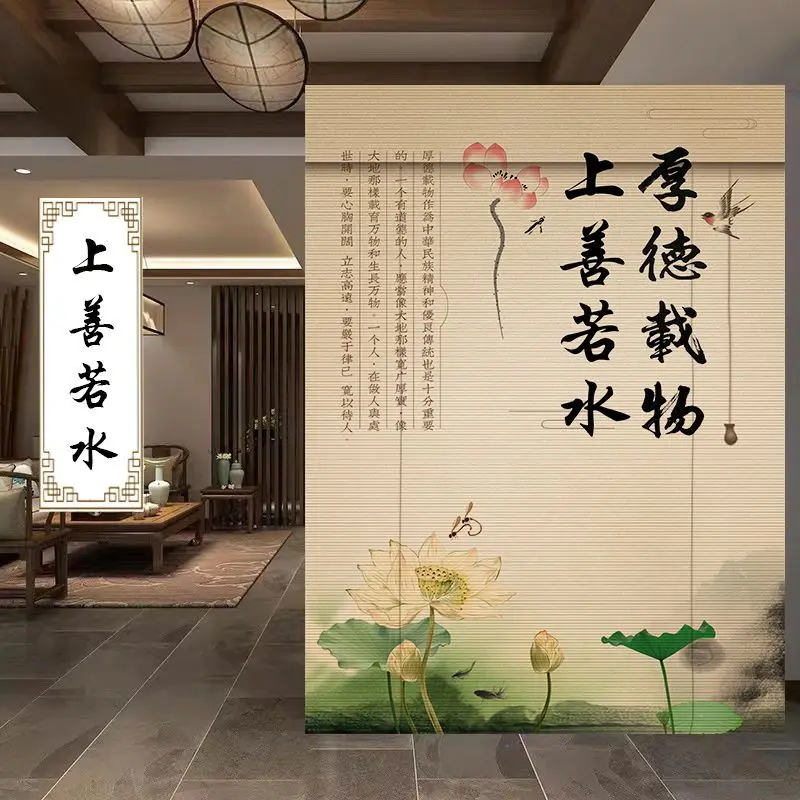 厚德載物
上善若水
厚德載物作為中華民族精神和優良傳統也是十分重要
的,一个有道德的人,應當像大地那樣寬广厚實,像
大地那樣載育万物和生長万物。一个人,在做人與處
世時,要心胸開闊 立志高遠,要嚴于律己 寬以待人。
上善若水